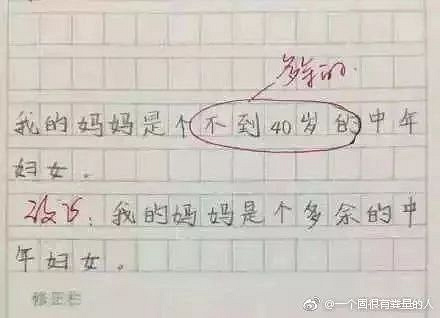 多余的.
我的妈妈是个不到40岁的中年
妇女。
改正：我的妈妈是个多余的中
年妇女。
修正栏
@一个固很有粪量的人